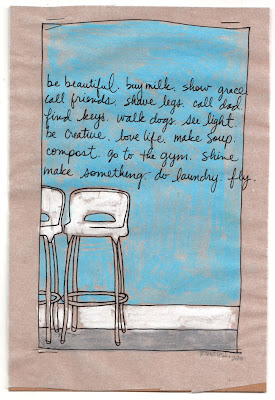 be beautiful. buy milk. show grace
call friends. shave legs. call dad.
find keys. walk dogs. see light.
be creative. love life. make soup.
compost. go to the gym. shine
make something. do laundry. fly.